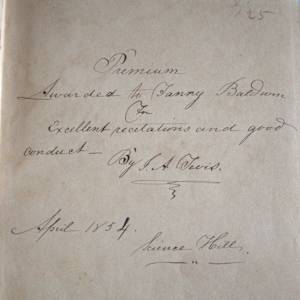 25
Premium
Awarded to Fanny Baldwin
For
Excellent recitations and good
conduct—
By J. A. Tevis.
April 1854.
Science Hill